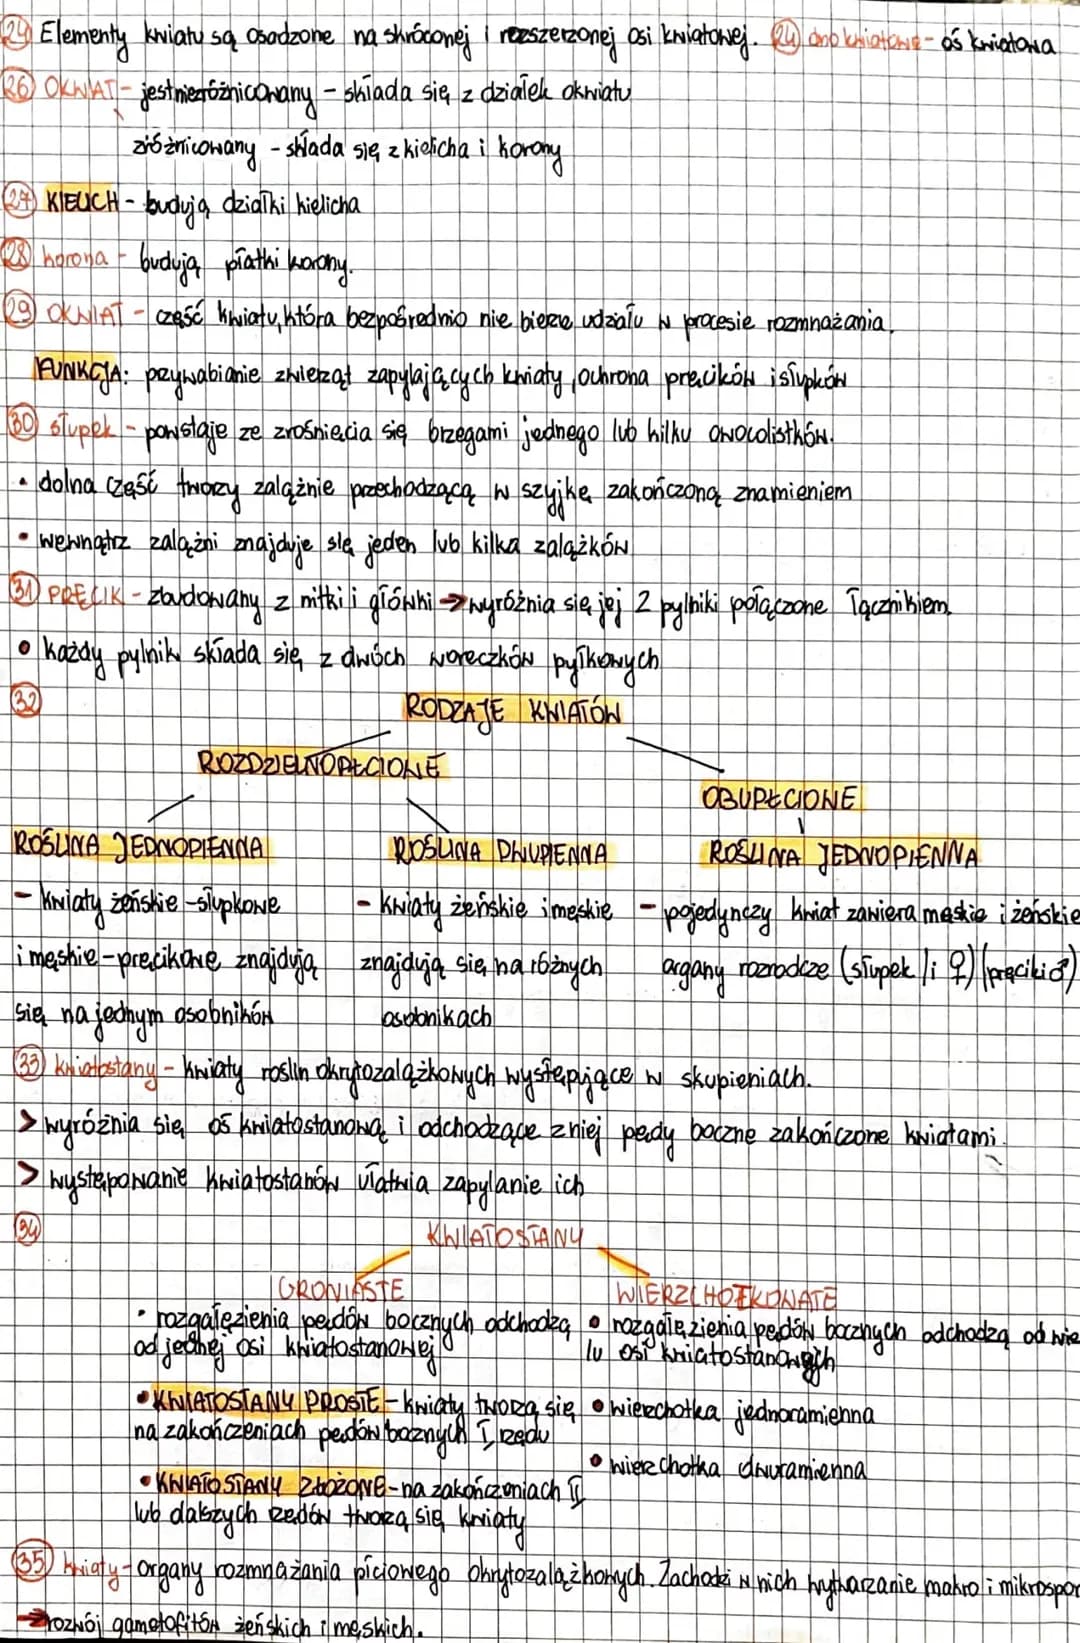 24 Elementy kwiatu są osadzone na skróconej i rozszerzonej osi kwiatowej. 24 dno kwiatowe - oś kwiatowa
26 OKWIAT - jest niezróżnicowany - składa się z działek okwiatu
zróżnicowany - składa się z kielicha i korony
27 KIELICH - budują działki kielicha
28 korona - budują płatki korony.
29 OKWIAT - część kwiatu, która bezpośrednio nie bierze udziału w procesie rozmnażania.
FUNKCJA: przywabianie zwierząt zapylających kwiaty, ochrona pręcików i słupków
30 słupek - powstaje ze zrośnięcia się brzegami jednego lub kilku owocolistków.
• dolna część tworzy zalążnie przechodzącą w szyjkę zakończoną znamieniem
• wewnątrz zalążni znajduje się jeden lub kilka zalążków
31 PRĘCIK - zbudowany z nitki i główki → wyróżnia się jej 2 pylniki połączone łącznikiem.
• każdy pylnik składa się z dwóch woreczków pyłkowych
32
RODZAJE KWIATÓW
ROZDZIELNOPŁCIONE
OBUPŁCIONE
ROŚLINA JEDNOPIENNA ROŚLINA DWUPIENNA ROŚLINA JEDNOPIENNA
- kwiaty żeńskie - słupkowe - kwiaty żeńskie i męskie - pojedynczy kwiat zawiera męskie i żeńskie
i męskie - pręcikowe znajdują znajdują się na różnych organy rozrodcze (słupek/i ♀) (pręciki ♂)
się na jednym osobników osobnikach
33 kwiatostany - kwiaty roślin okrytozalążkowych występujące w skupieniach.
> wyróżnia się oś kwiatostanową i odchodzące z niej pędy boczne zakończone kwiatami.
> występowanie kwiatostanów ułatwia zapylanie ich
34
KWIATOSTANY
GRONIASTE WIERZCHOŁKOWATE
• rozgałęzienia pędów bocznych odchodzą • rozgałęzienia pędów bocznych odchodzą od wie
od jednej osi kwiatostanowej lu osi kwiatostanowych
• KWIATOSTANY PROSTE - kwiaty tworzą się • wierzchotka jednoramienna
na zakończeniach pędów bocznych I rzędu
• wierzchotka dwuramienna
• KWIATOSTANY ZŁOŻONE - na zakończeniach II
lub dalszych rzędów tworzą się kwiaty
35 kwiaty - organy rozmnażania płciowego okrytozalążkowych. Zachodzi w nich wytwarzanie makro i mikrospor
→ rozwój gametofitów żeńskich i męskich.